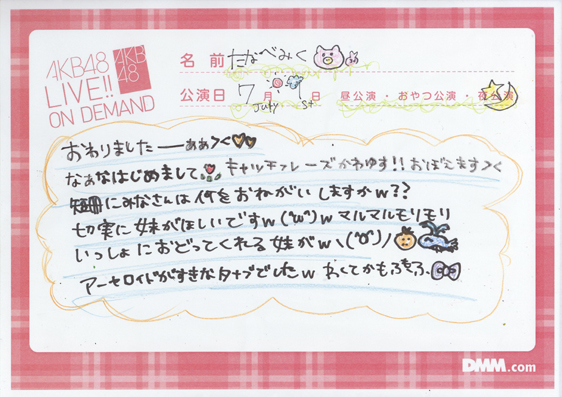 AKB48
LIVE!!
ON DEMAND
AKB
48
名前 たなべみく
公演日 7月1日 昼公演・おやつ公演・夜公演
July 1st
おわりましたーぁぁ><
なぁなはじめまして キャッチフレーズかわゆす!!おぼえます><
短冊にみなさんは何をおねがいしますかw??
切実に妹がほしいですw('w')w マルマルモリモリ
いっしょにおどってくれる妹がw
アーセロイドがすきなタナブでしたw
DMM.com